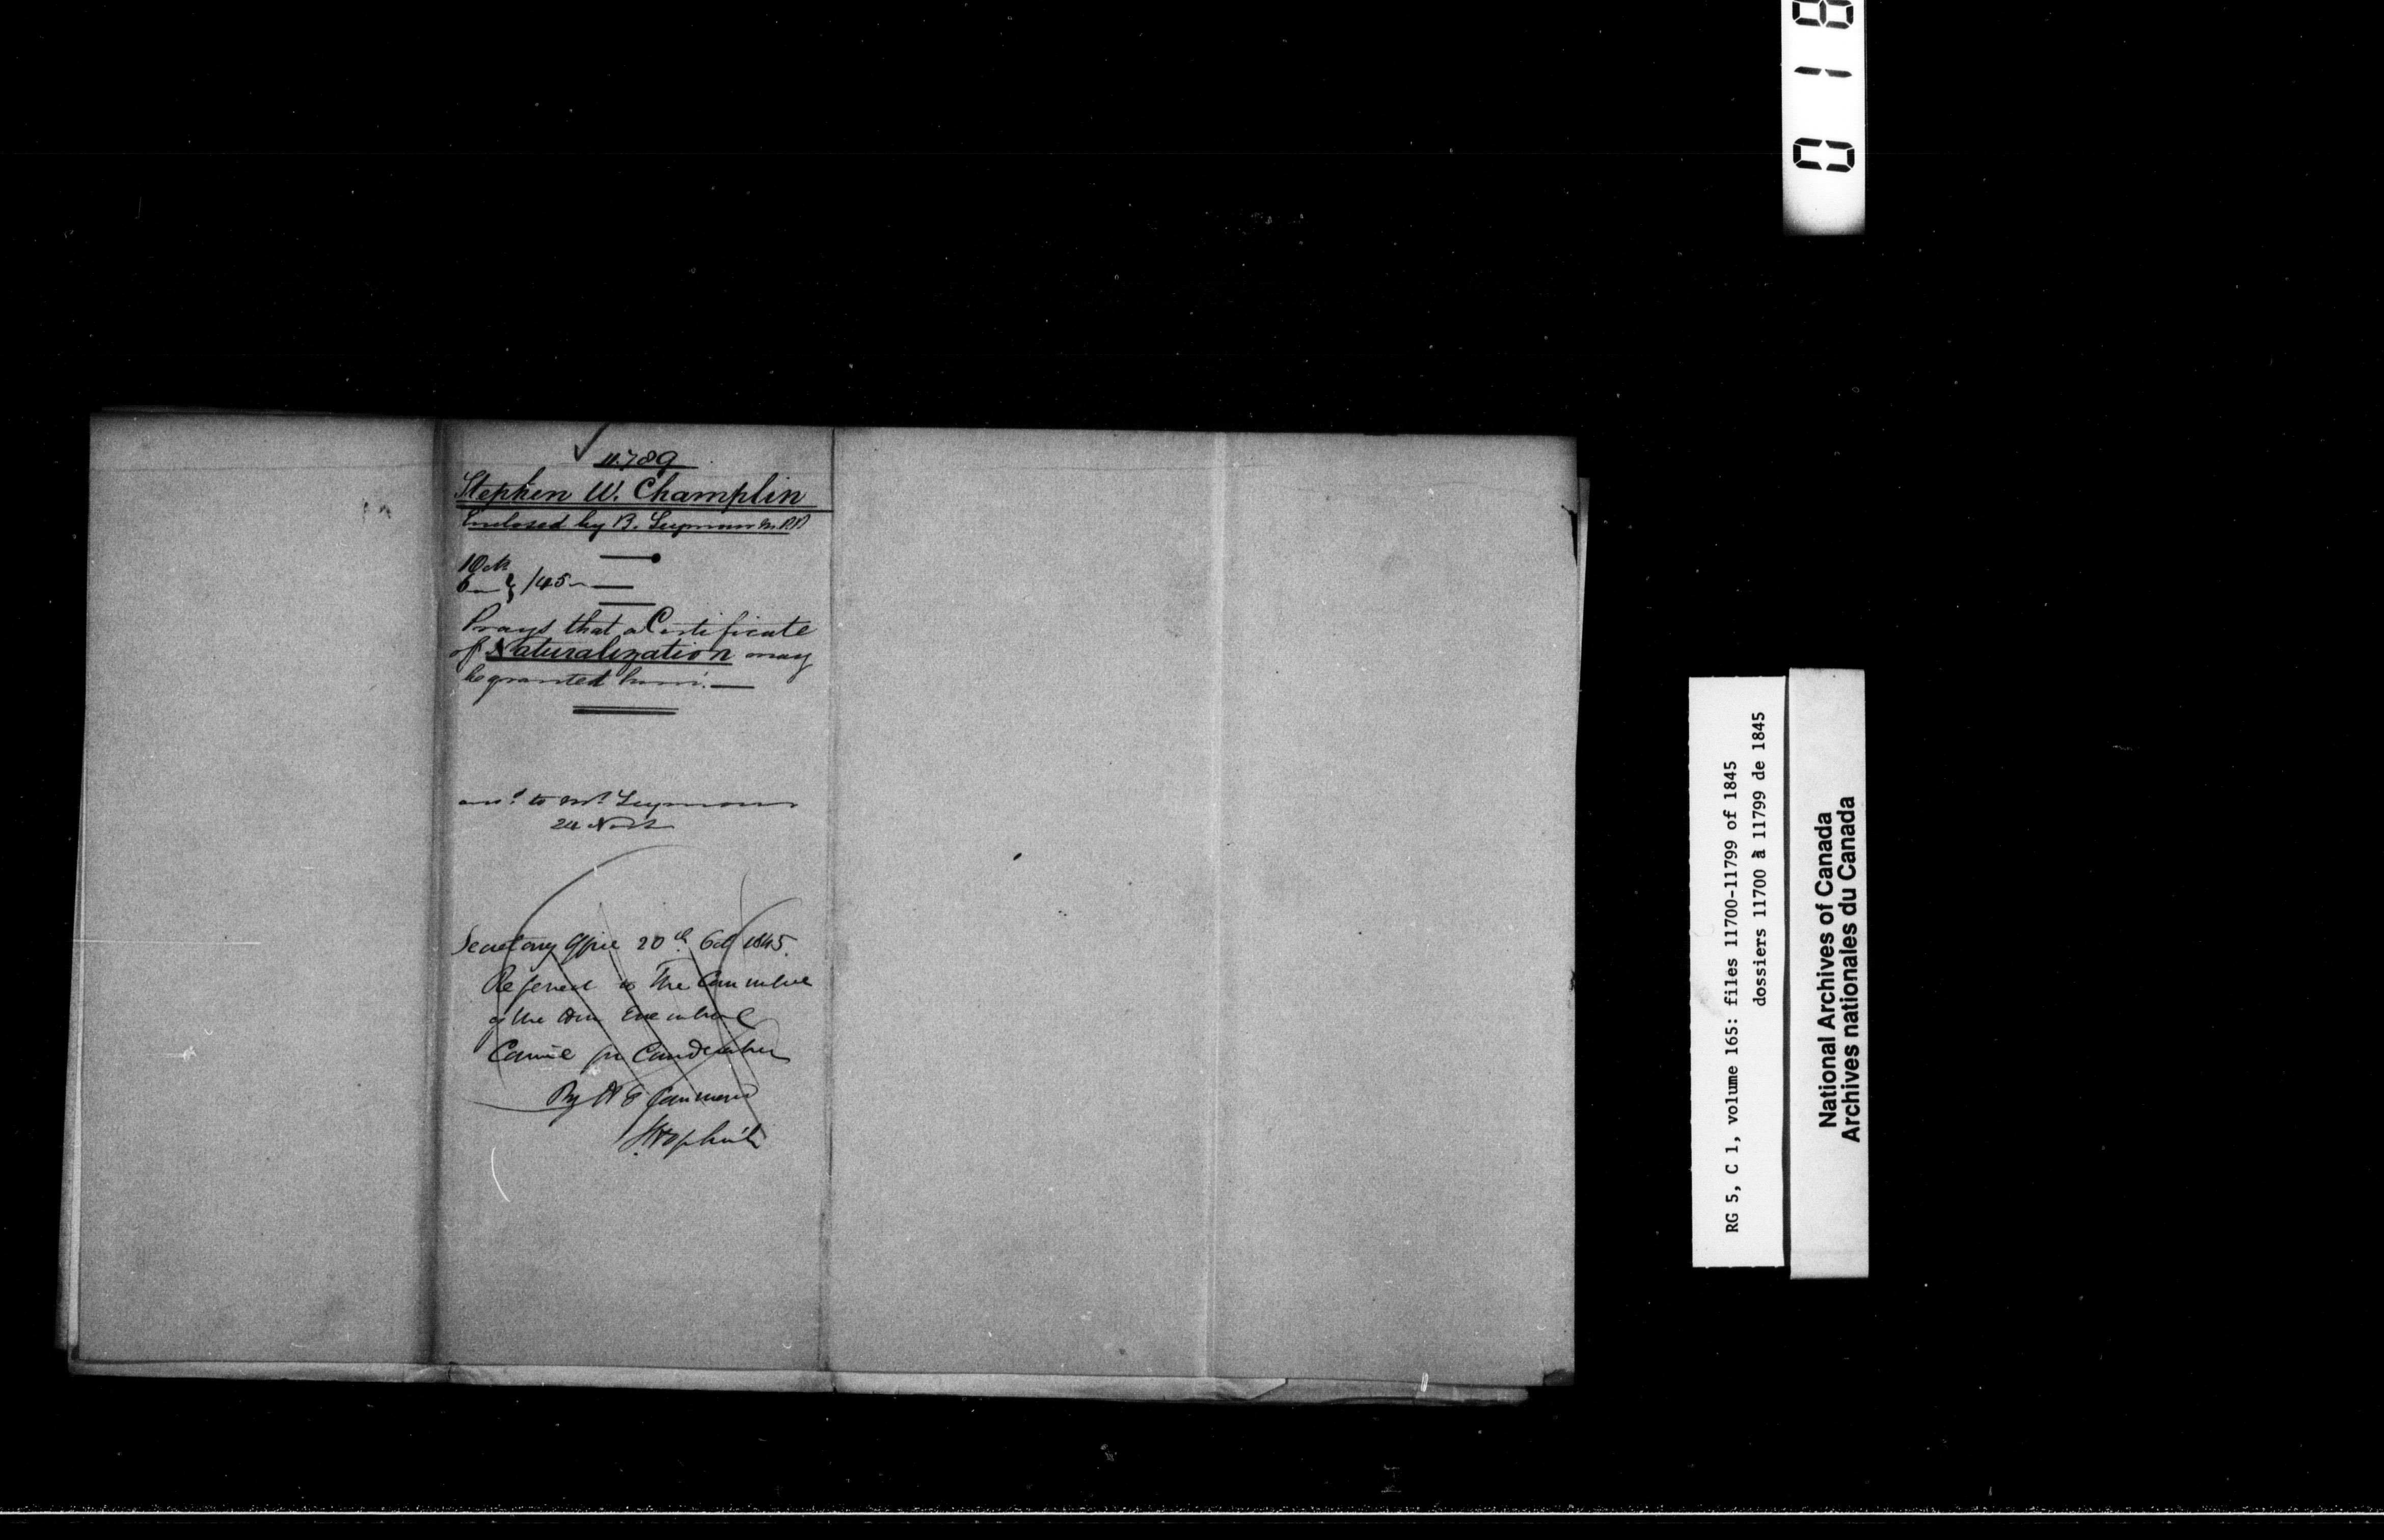 11.789
Stephen W. Champlin
Enclosed by B. Seymour M.P.P
Prays that a Certificate
of Naturalization may
be granted him.—
ans.d to Mr. Seymour
24 Novr
Secretary Office 20th Oct 1845.
Referred to The Committee
of the Hon Executive
Council for Consideration
By H E Command
J Hopkirk
RG 5, C 1, volume 165: files 11700-11799 of 1845
dossiers 11700 à 11799 de 1845
National Archives of Canada
Archives nationales du Canada
0 1 8